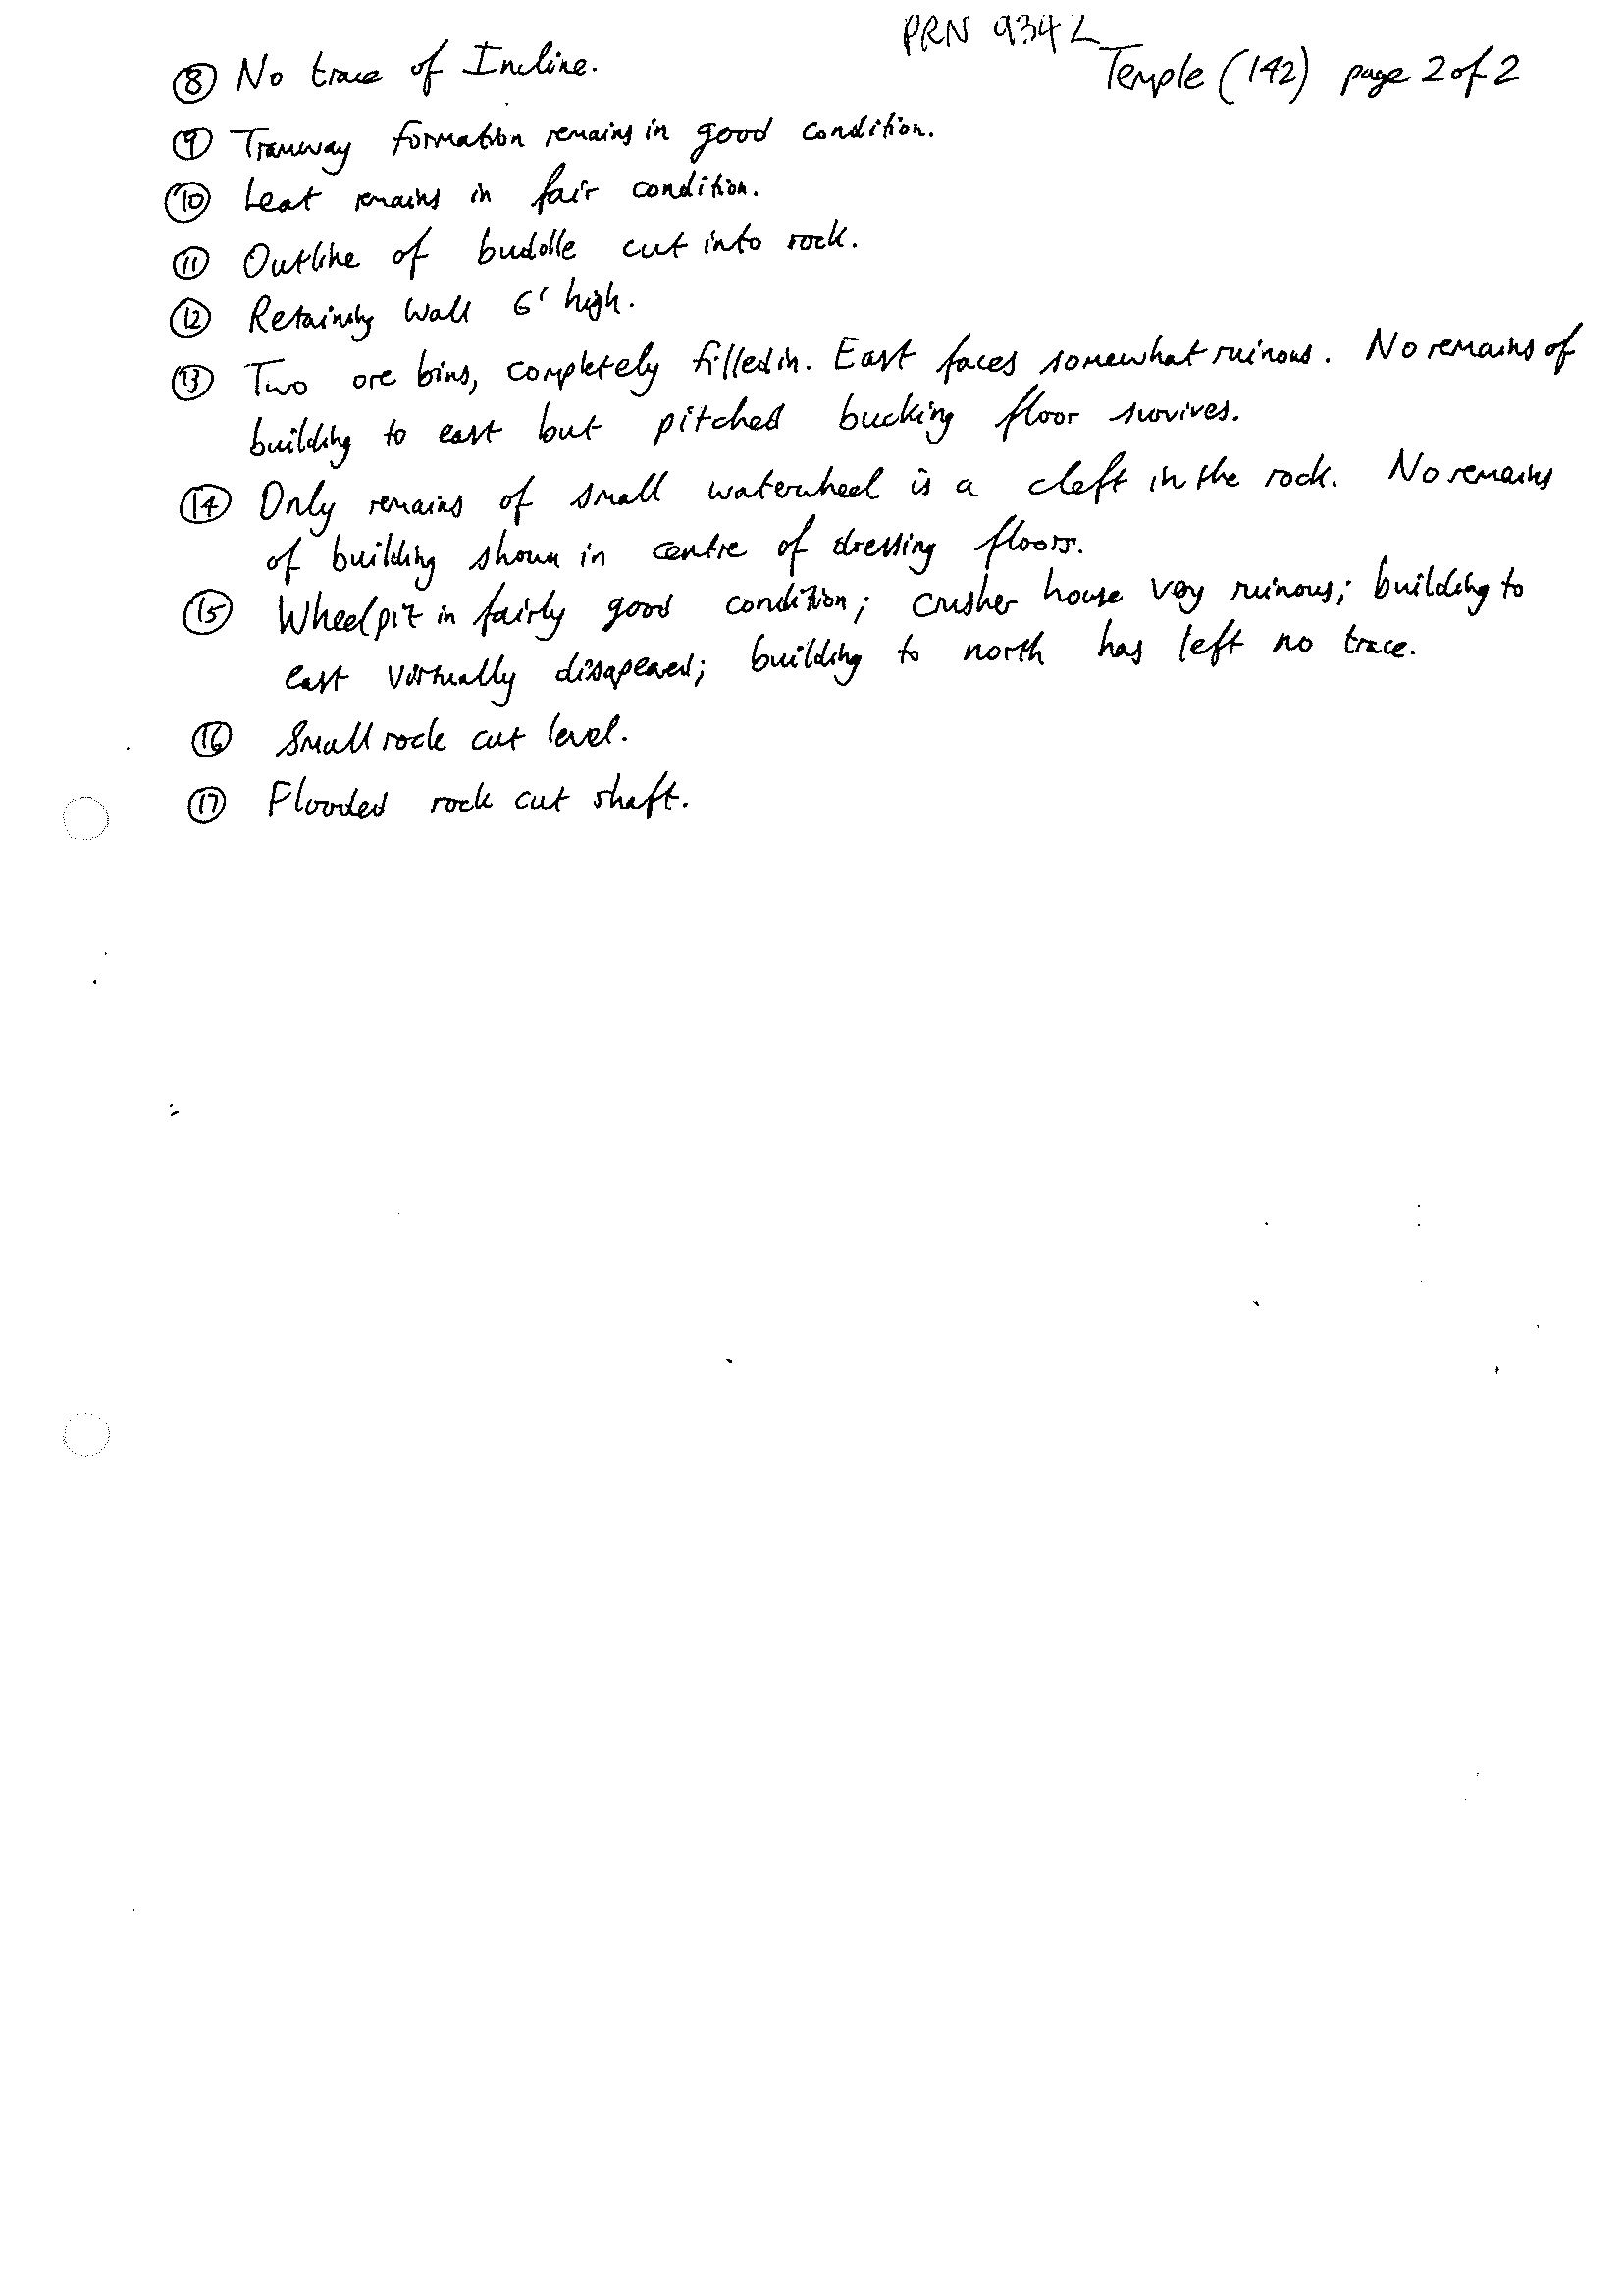 PRN 9342
Temple (142) page 2 of 2
⑧ No trace of Incline.
⑨ Tramway formation remains in good condition.
⑩ Leat remains in fair condition.
⑪ Outline of buddle cut into rock.
⑫ Retaining Wall 6' high.
⑬ Two ore bins, completely filled in. East faces somewhat ruinous. No remains of
building to east but pitched bucking floor survives.
⑭ Only remains of small waterwheel is a cleft in the rock. No remains
of building shown in centre of dressing floors.
⑮ Wheelpit in fairly good condition; crusher house very ruinous; building to
east virtually disapeared; building to north has left no trace.
⑯ Small rock cut level.
⑰ Flooded rock cut shaft.